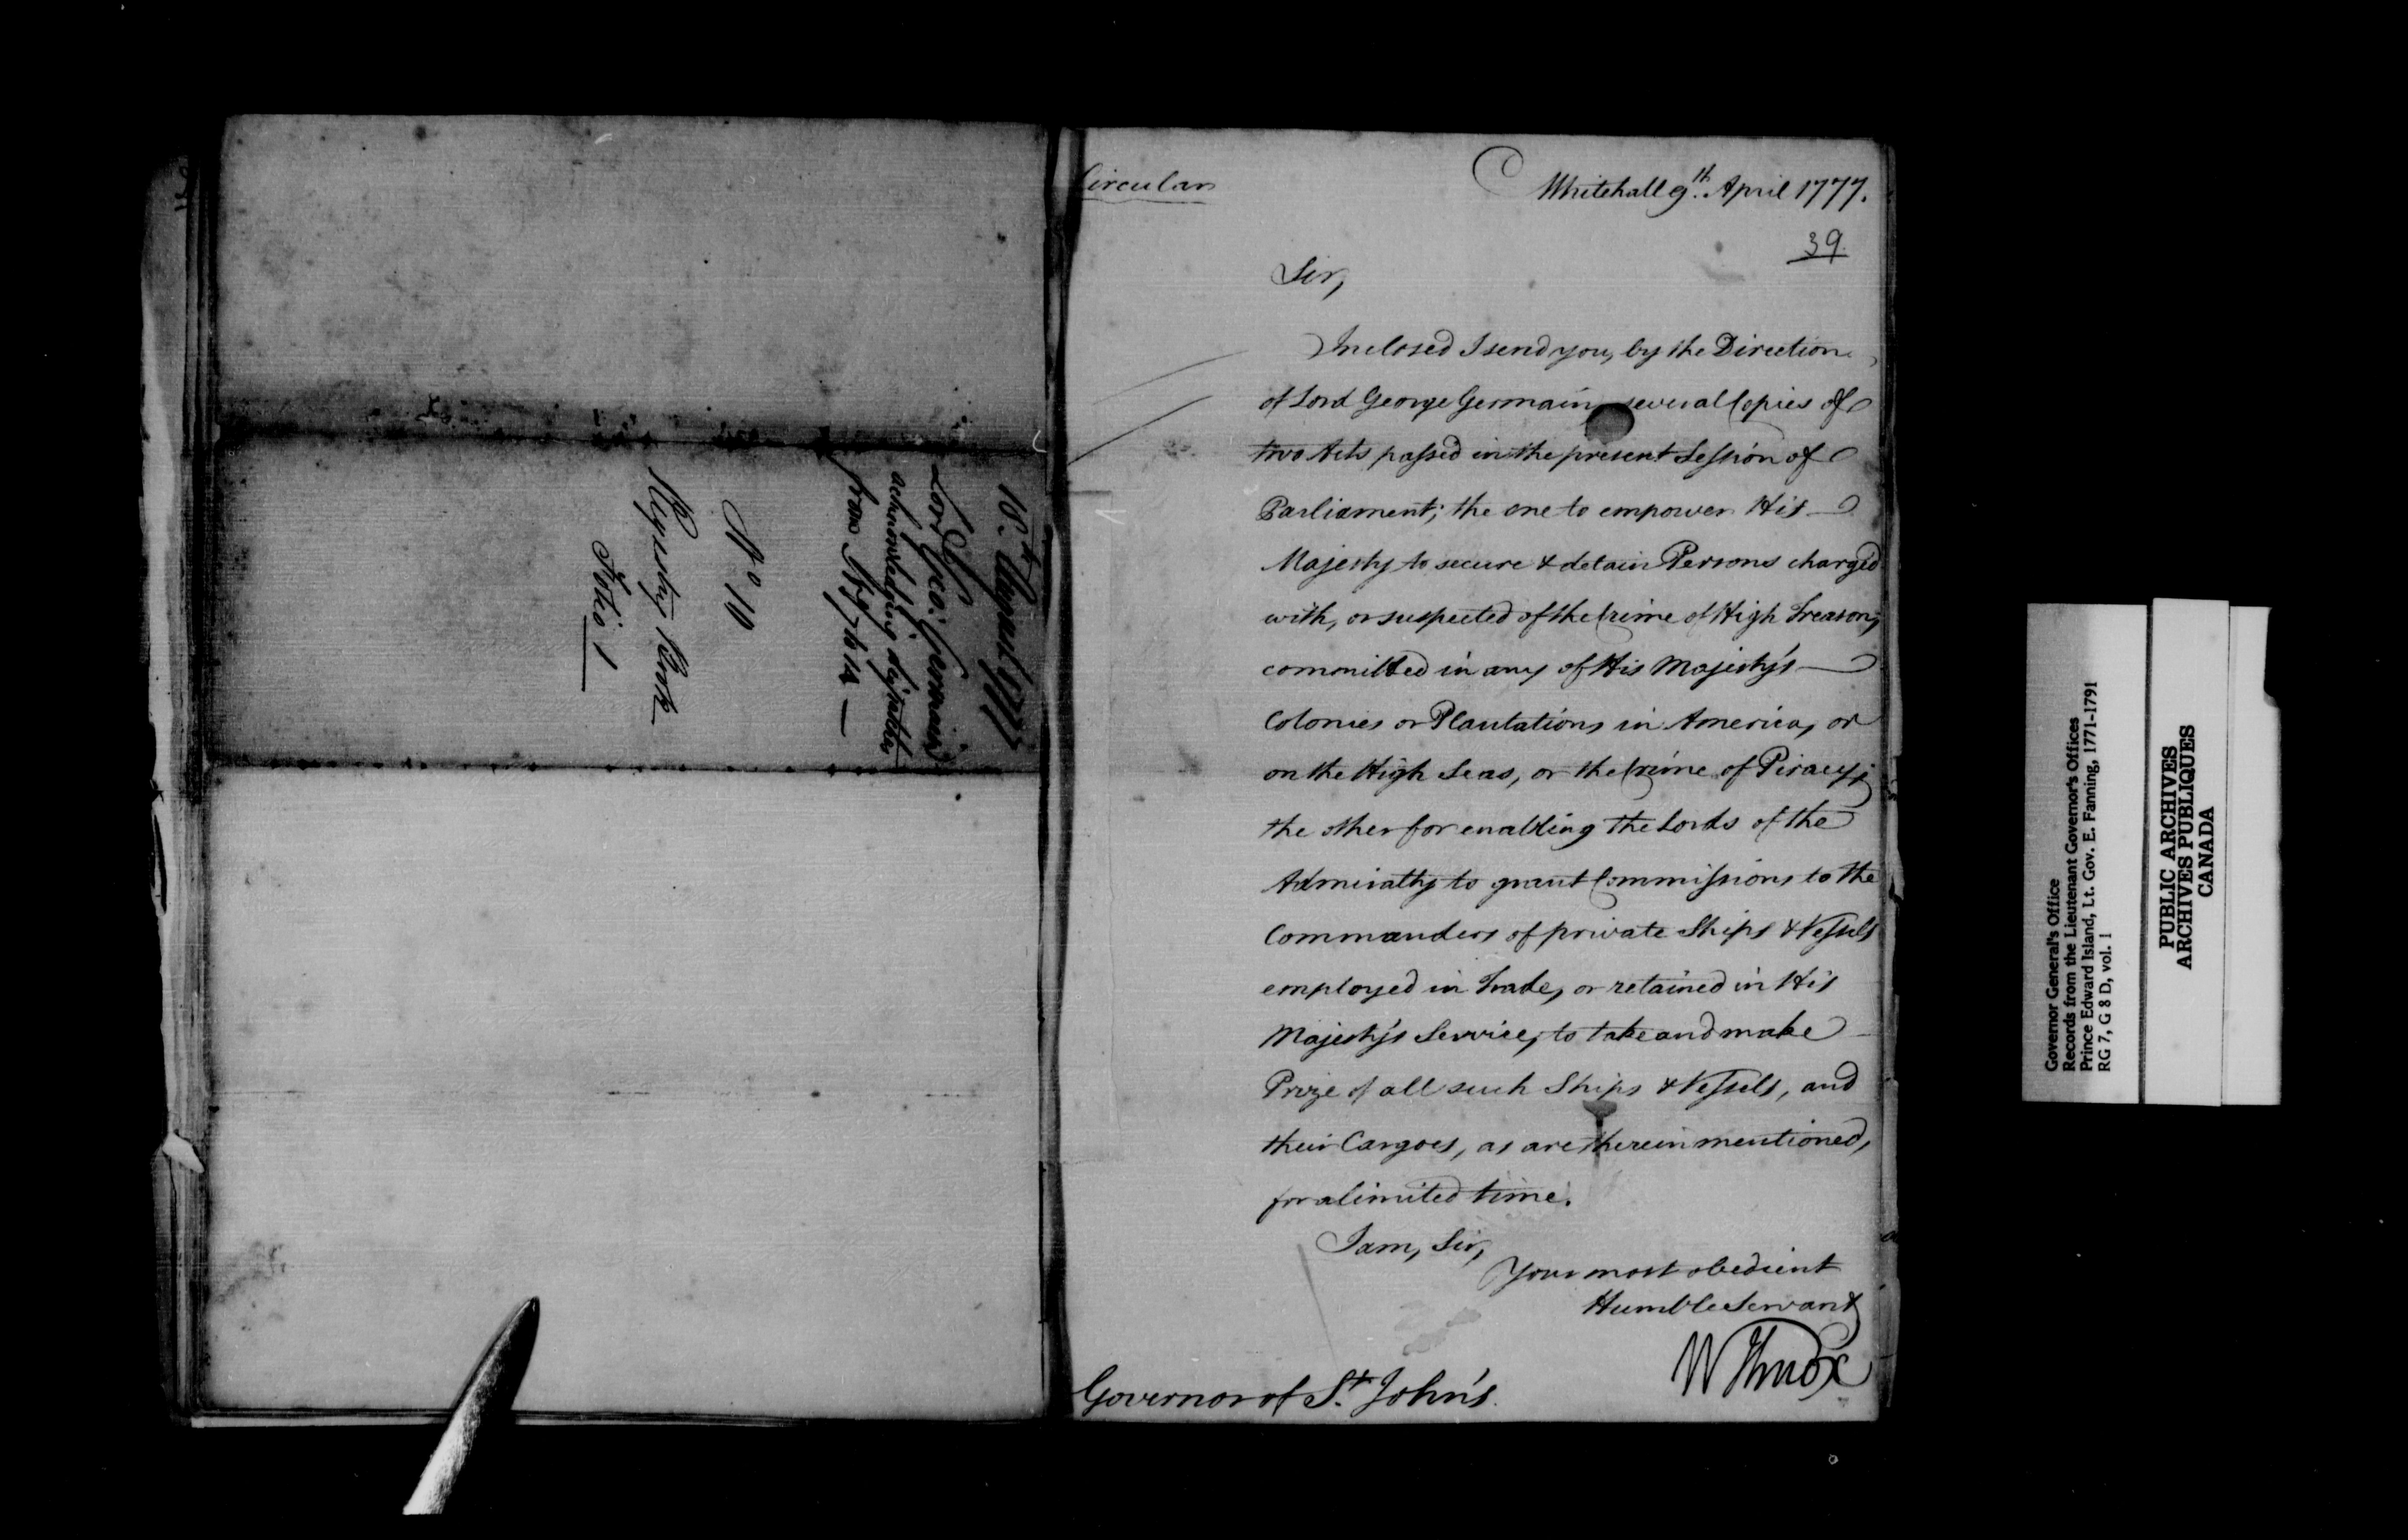 18th August 1777
Lord Geo: Germain
acknowledging dispatches
from
No 10
Registry Book
Folio 1
Circular
Whitehall 9th. April 1777.
39
Sir,
Inclosed I send you, by the Direction
of Lord George Germain several Copies of
two Acts passed in the present Session of
Parliament; the one to empower His
Majesty to secure & detain Persons charged
with, or suspected of the Crime of High Treason,
committed in any of His Majesty's
Colonies or Plantations in America, or
on the High Seas, or the Crime of Piracy;
the other for enabling the Lords of the
Admiralty to grant Commissions to the
Commanders of private Ships & Vessels
employed in Trade, or retained in His
Majesty's Service, to take and make
Prize of all such Ships & Vessels, and
their Cargoes, as are therein mentioned,
for a limited time.
I am, Sir,
Your most obedient
Humble Servant
W Knox
Governor of St. John's.
Governor General's Office
Records from the Lieutenant Governor's Offices
Prince Edward Island, Lt. Gov. E. Fanning, 1771-1791
RG 7, G 8 D, vol. 1
PUBLIC ARCHIVES
ARCHIVES PUBLIQUES
CANADA